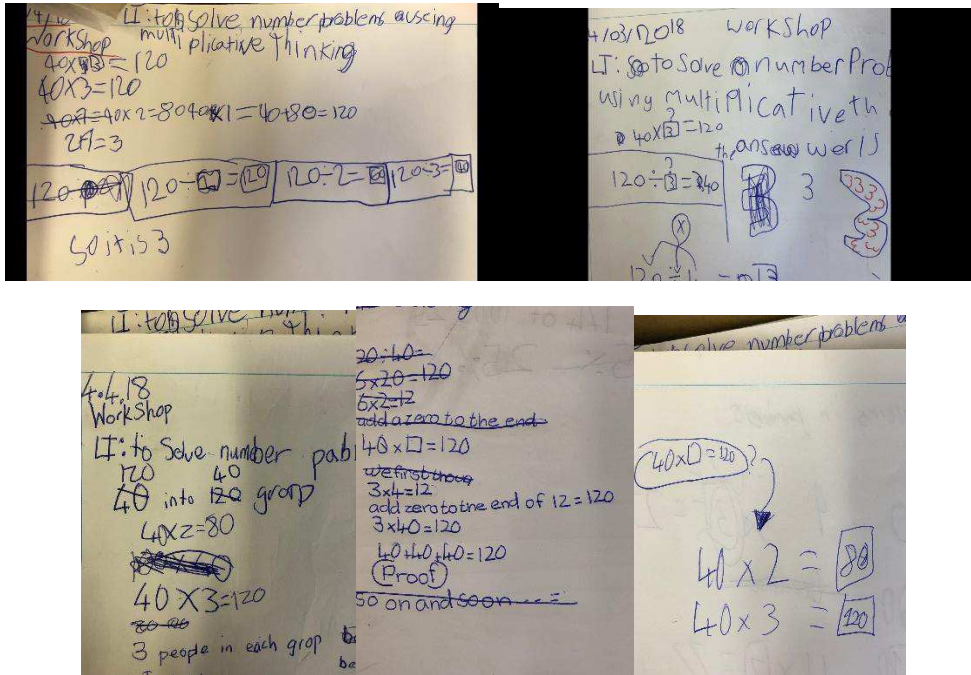 LI: to solve number problems using
Workshop multiplicative thinking
40×3=120
40×3=120
40×2=80 40×1=40+80=120
2+1=3
120 120÷1=120 120÷2=60 120÷3=40
so it is 3
4/03/2018 Workshop
LI: to solve number Prob
using multiplicative th
?
40×3=120
the answer is
?
120÷3=40
3
3 3 3
3
3
3 3
x
120÷
LI: to solve, num
4.4.18
Workshop
LI: to Solve number pabl
120 40
40 into 120 grop
40×2=80
40×3=120
3 people in each grop
be
20÷40=
6×20=120
6×2=12
add a zero to the end
40×□=120
we first thoug
3×4=12
add zero to the end of 12=120
3×40=120
40+40+40=120
Proof
so on and so on ... =
solve number problems u
40×□=120 ?
40×2=80
40×3=120